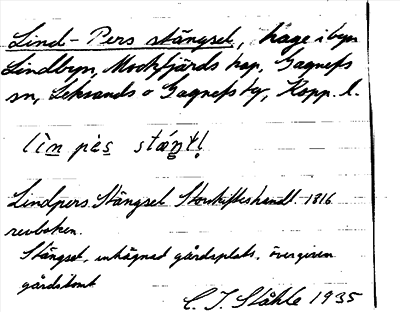 Lind-Pers stängsel, hage i byn
Lindbyn, Mockfjärds kap., Gagnefs
sn, Leksands o Gagnefs tg, Kopp. l.
lìn pès stáŋ
Lindpers Stängsel Storskifteshandl. 1816
revboken.
Stängsel, inhägnad gårdsplats, övergiven
gårdstomt
C. I. Ståhle 1935